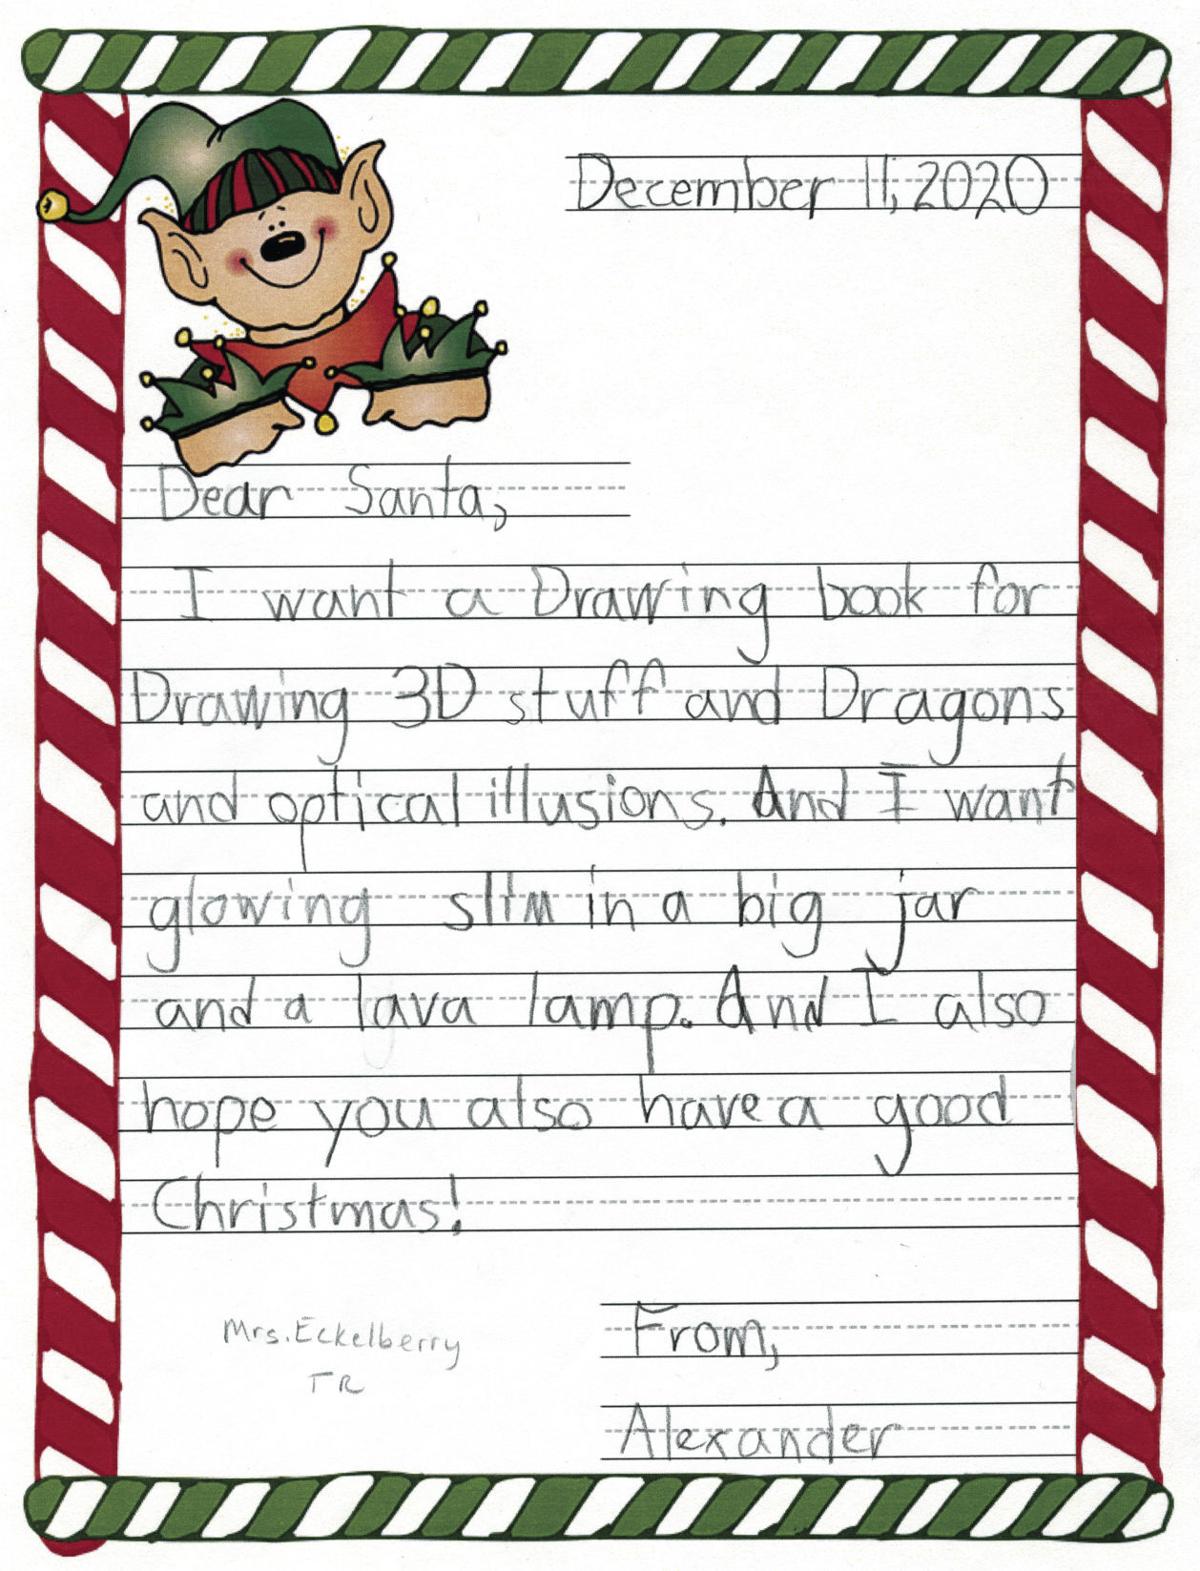 December 11, 2020
Dear Santa,
I want a Drawing book for
Drawing 3D stuff and Dragons
and optical illusions. And I want
glowing slim in a big jar
and a lava lamp. And I also
hope you also have a good
Christmas!
From,
Alexander
Mrs. Eckelberry
TR